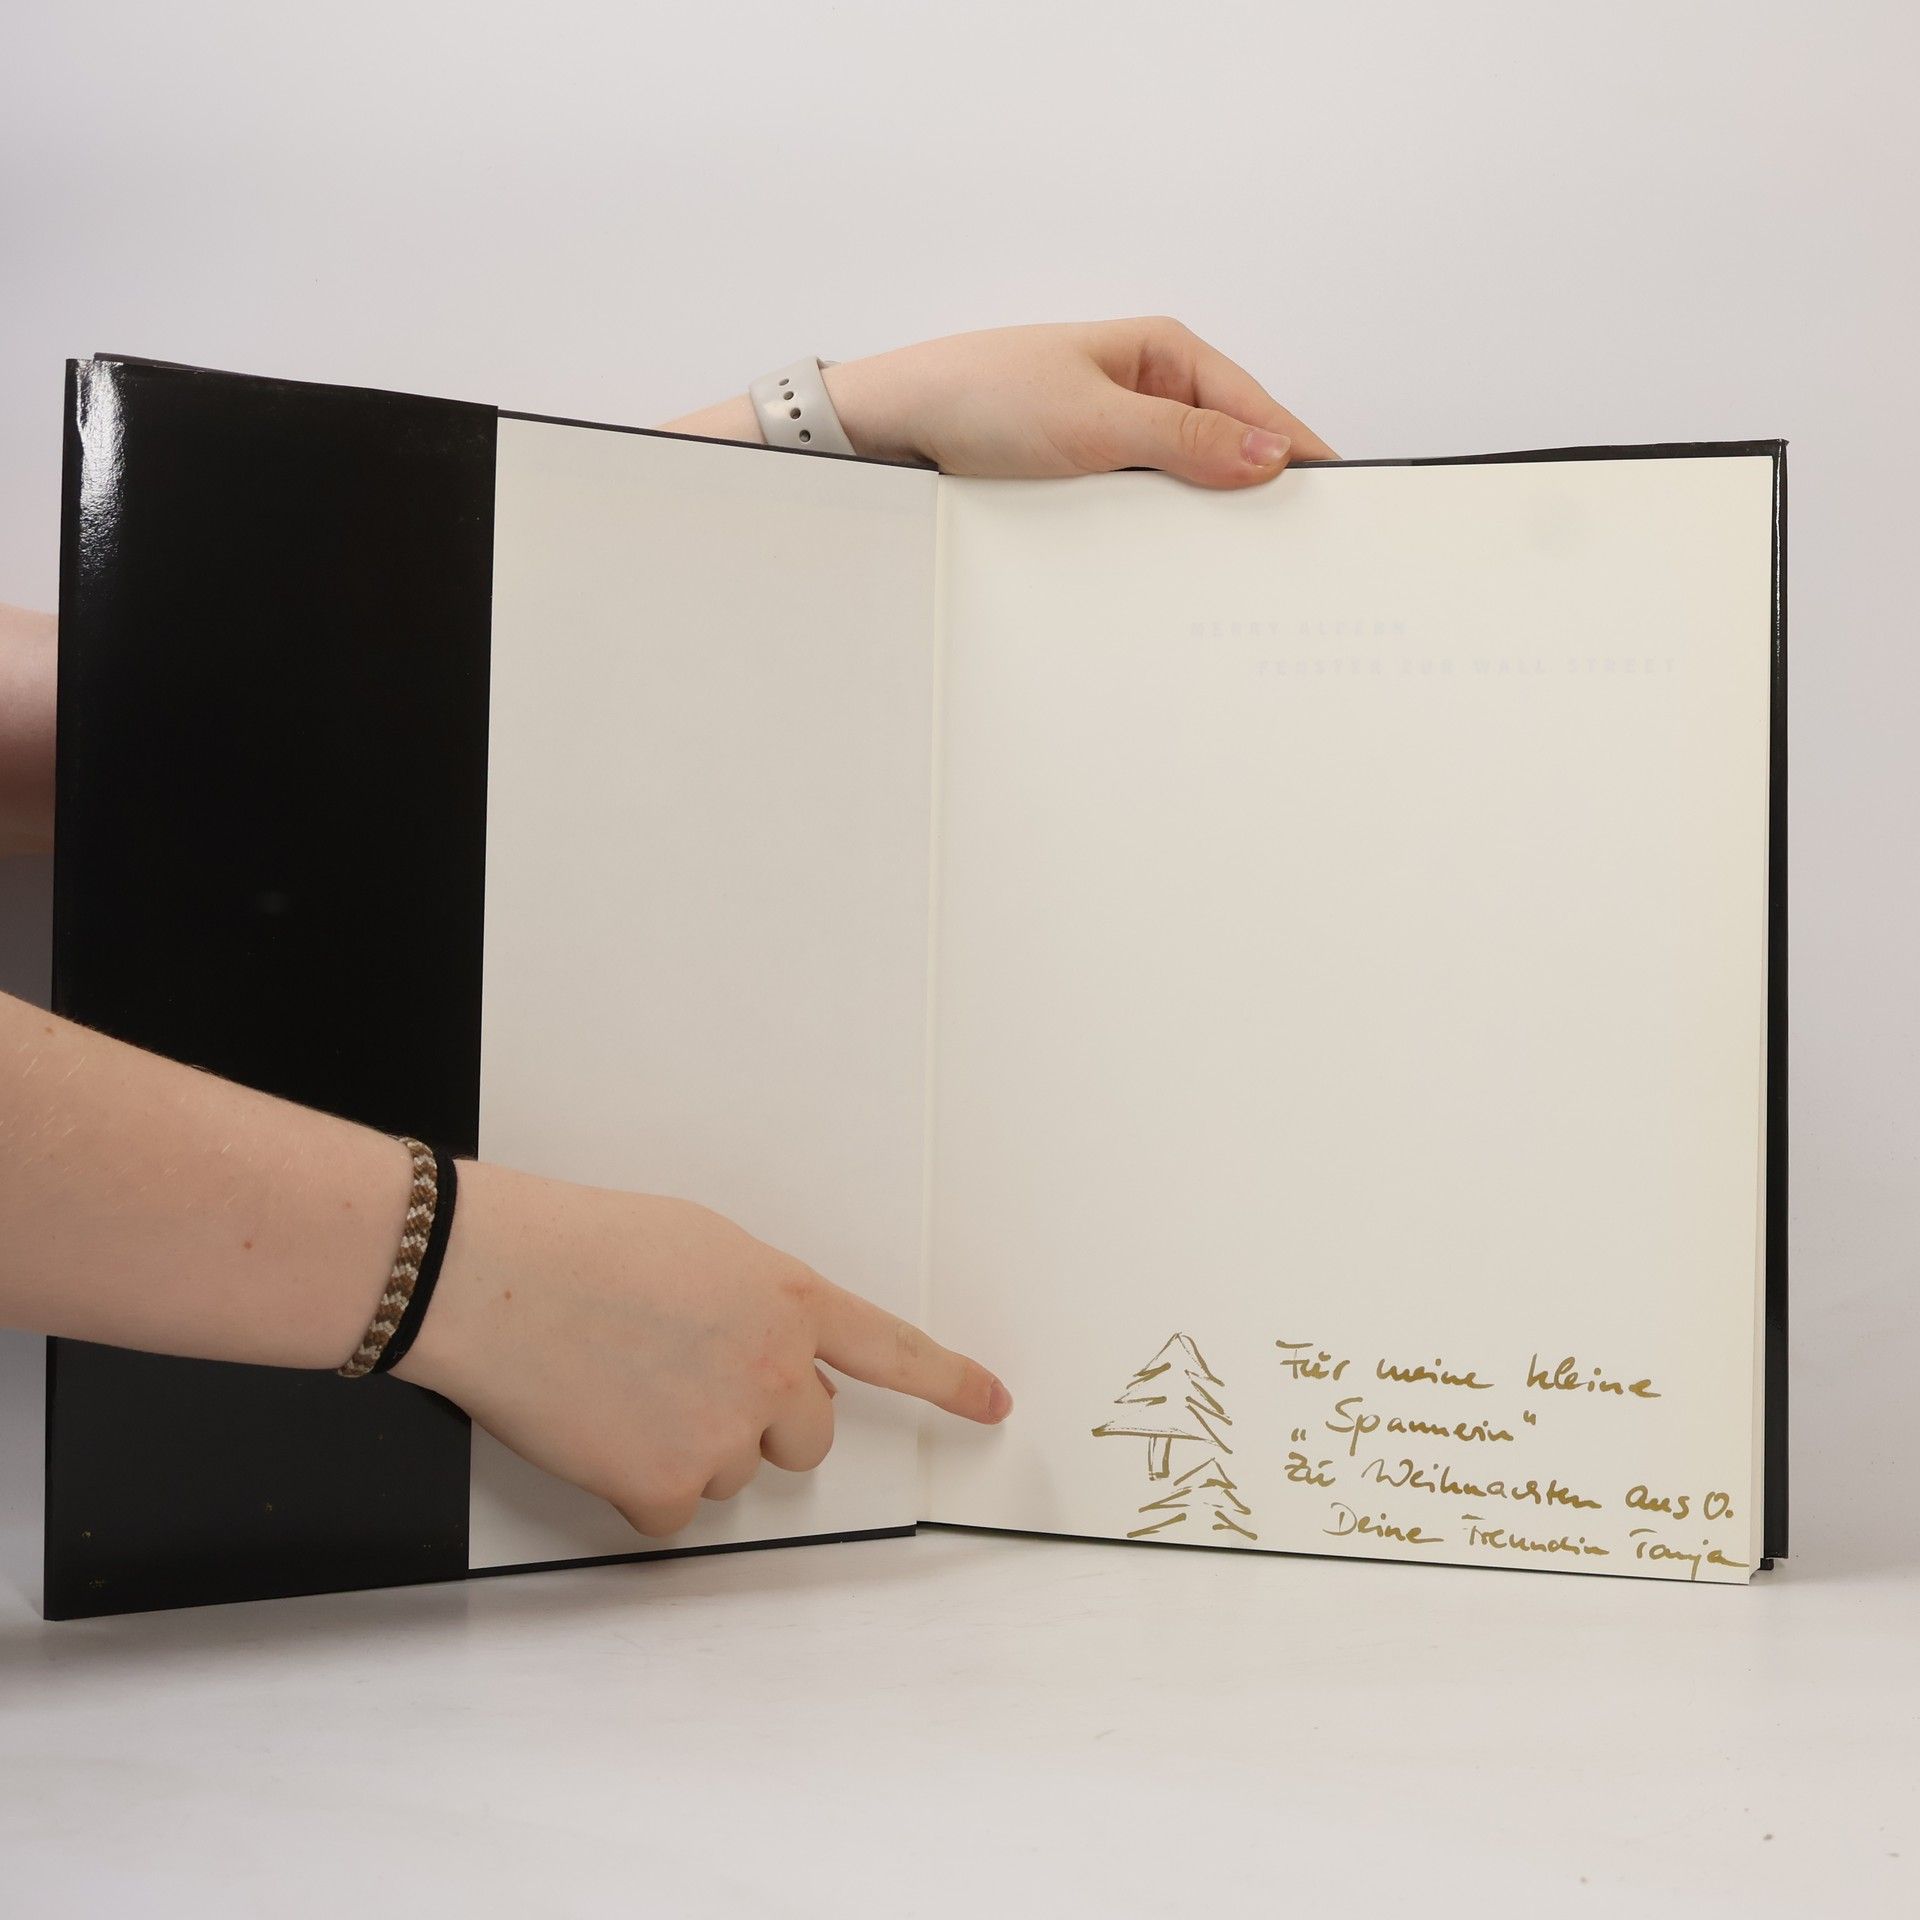 MERRY ALPERN
FENSTER ZUR WALL STREET
Für meine kleine
„Spannerin“
Zu Weihnachten aus O.
Deine Freundin Tanja